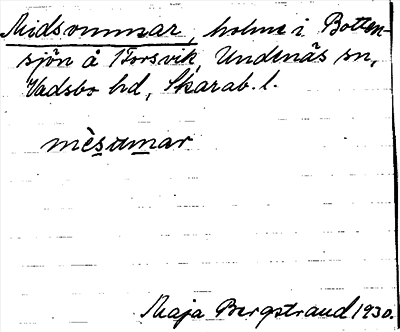 Midsommar, holme i Botten-
sjön å Forsvik, Undenäs sn,
Vadsbo hd, Skarab. l.
mèsumar
Maja Bergstrand 1930.